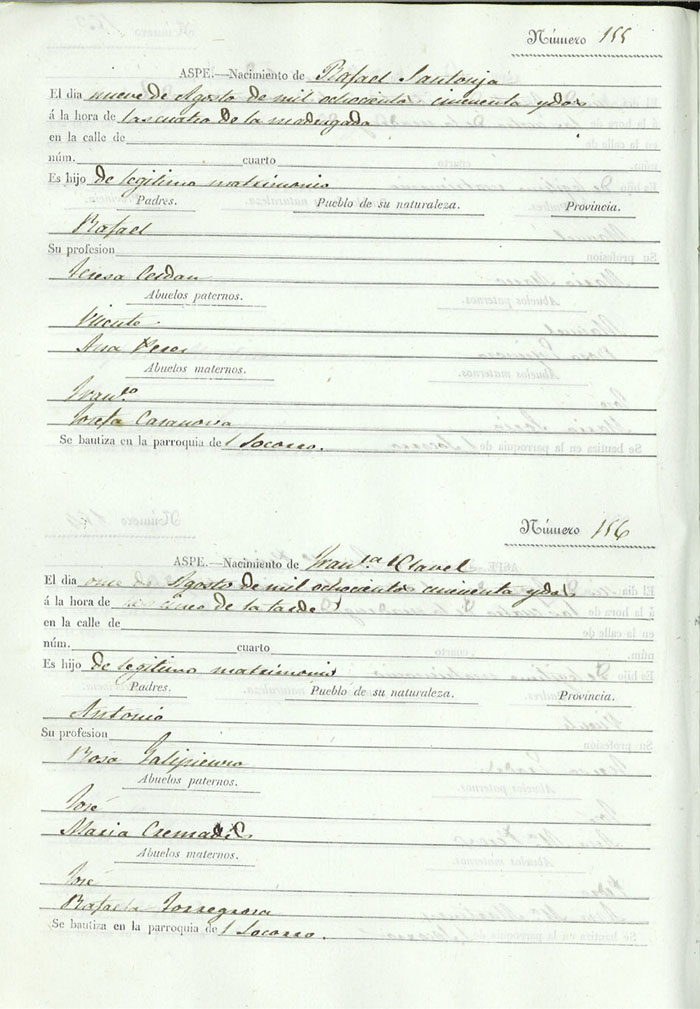 Número 155
ASPE.—Nacimiento de Rafael Santonja
El dia nueve de Agosto de mil ochocientos cincuenta y dos
á la hora de las cuatro de la madrugada
en la calle de
núm. cuarto
Es hijo de legitimo matrimonio
Padres. Pueblo de su naturaleza. Provincia.
Rafael
Su profesion
Teresa Cerdan
Abuelos paternos.
Vicente
Ana Perez
Abuelos maternos.
Fran.co
Josefa Casanova
Se bautiza en la parroquia de l Socorro.
Número 156
ASPE.—Nacimiento de Fran.ca Clavel
El dia once de Agosto de mil ochocientos cincuenta y dos
á la hora de las cinco de la tarde
en la calle de
núm. cuarto
Es hijo de legitimo matrimonio
Padres. Pueblo de su naturaleza. Provincia.
Antonio
Su profesion
Rosa Galipienso
Abuelos paternos.
José
Maria Cremades
Abuelos maternos.
José
Rafaela Torregrosa
Se bautiza en la parroquia de l Socorro.